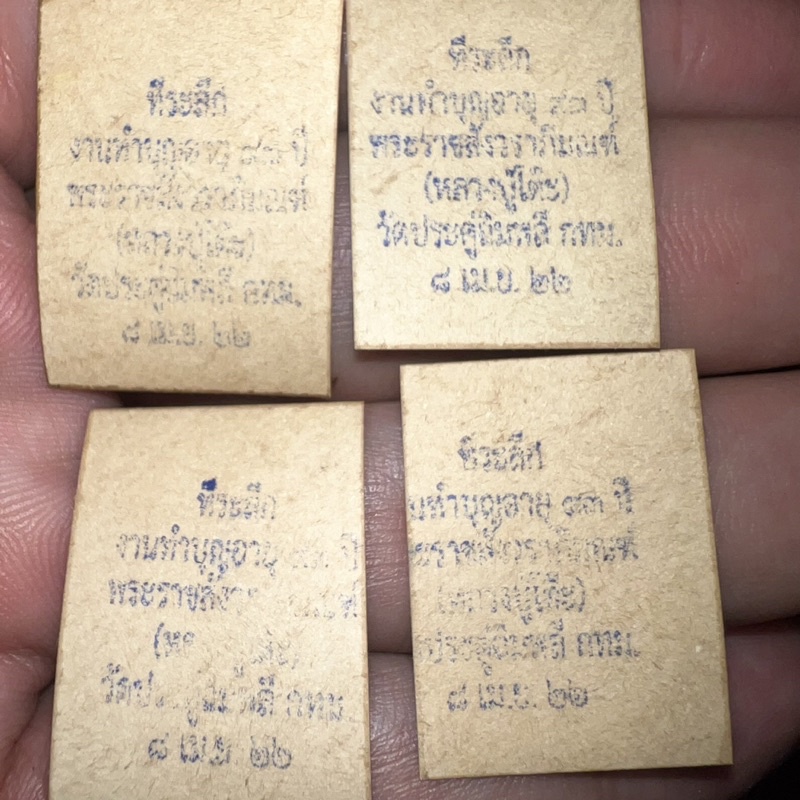 ที่ระลึก
งานทำบุญอายุ ๙๓ ปี
พระราชสังวราภิมณฑ์
(หลวงปู่โต๊ะ)
วัดประดู่ฉิมพลี กทม.
๘ เม.ย. ๒๒
ที่ระลึก
งานทำบุญอายุ ๙๓ ปี
พระราชสังวราภิมณฑ์
(หลวงปู่โต๊ะ)
วัดประดู่ฉิมพลี กทม.
๘ เม.ย. ๒๒
ที่ระลึก
งานทำบุญอายุ ปี
พระราชสังว
วัดประดู่ฉิมพลี กทม
๘ เม.ย. ๒๒
ที่ระลึก
นทำบุญอายุ ๙๓ ปี
พระราชสังวราภิมณฑ์
(หลวงปู่โต๊ะ)
ประดู่ฉิมพลี กทม.
๘ เม.ย. ๒๒